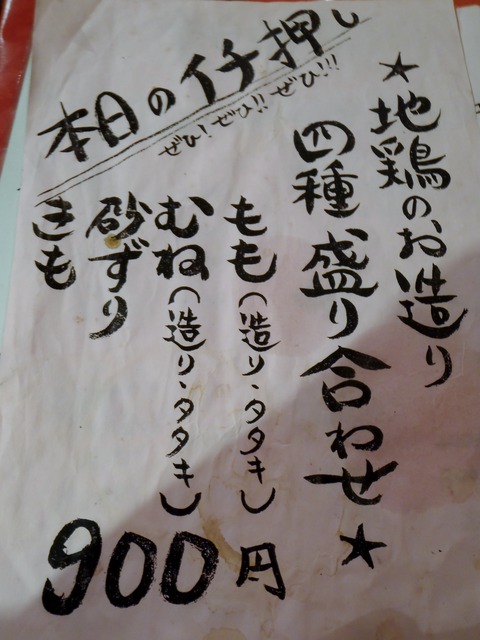 本日のイチ押し
ぜひ!ぜひ!!ぜひ!!!
★地鶏のお造り
四種盛り合わせ★
もも(造り・タタキ)
むね(造り・タタキ)
砂ずり
きも
900円